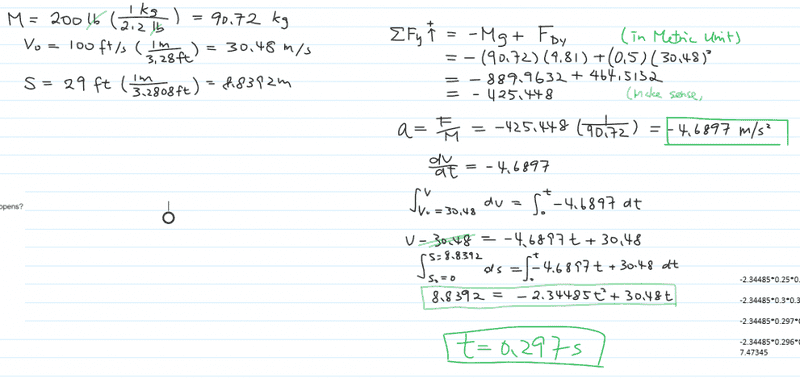 M = 200 lb (1 kg / 2.2 lb) = 90.72 kg
V₀ = 100 ft/s (1m / 3.28ft) = 30.48 m/s
S = 29 ft (1m / 3.2808ft) = 8.8392m
opens?
ΣFy ↑⁺ = -Mg + F_Dy (in Metric Unit)
= -(90.72)(9.81) + (0.5)(30.48)²
= -889.9632 + 464.5152
= -425.448 (make sense,
a = F/M = -425.448 (1/90.72) = -4.6897 m/s²
dv/dt = -4.6897
∫_{V₀=30.48}^{V} dv = ∫_{0}^{t} -4.6897 dt
V = 30.48 = -4.6897t + 30.48
∫_{S₀=0}^{S=8.8392} ds = ∫_{0}^{t} -4.6897t + 30.48 dt
8.8392 = -2.34485t² + 30.48t
t = 0.297s
-2.34485*0.25*0.
-2.34485*0.3*0.3
-2.34485*0.297*0
-2.34485*0.296*0
7.47345